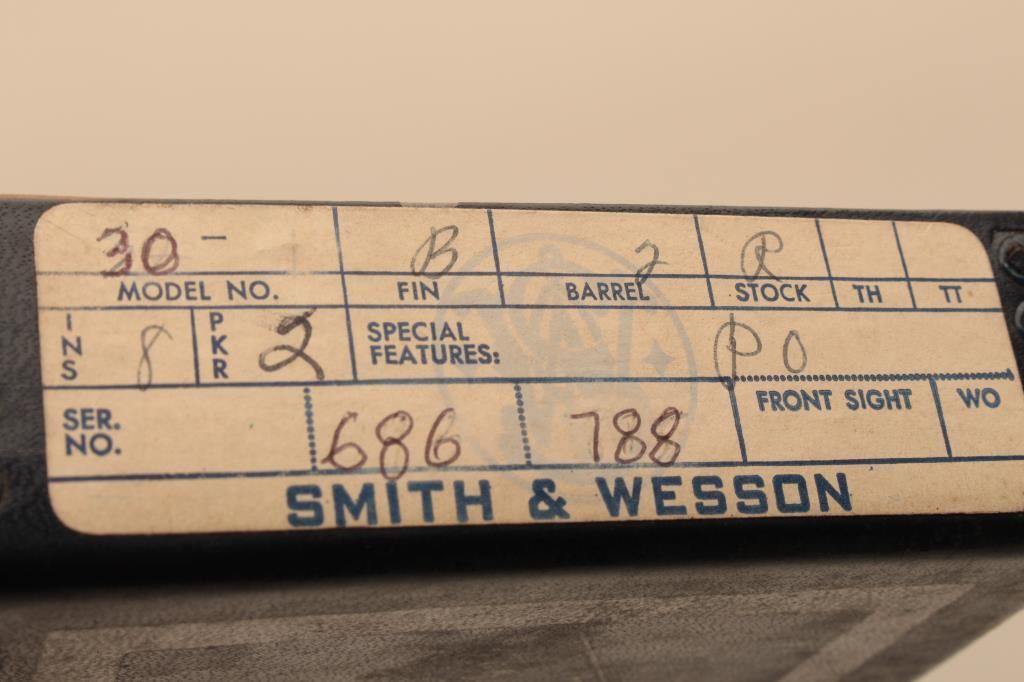 30 - B 2 R
MODEL NO. FIN BARREL STOCK TH TT
INS 8 PKR 2 SPECIAL FEATURES: PO
FRONT SIGHT WO
SER. NO. 686 788
SMITH & WESSON